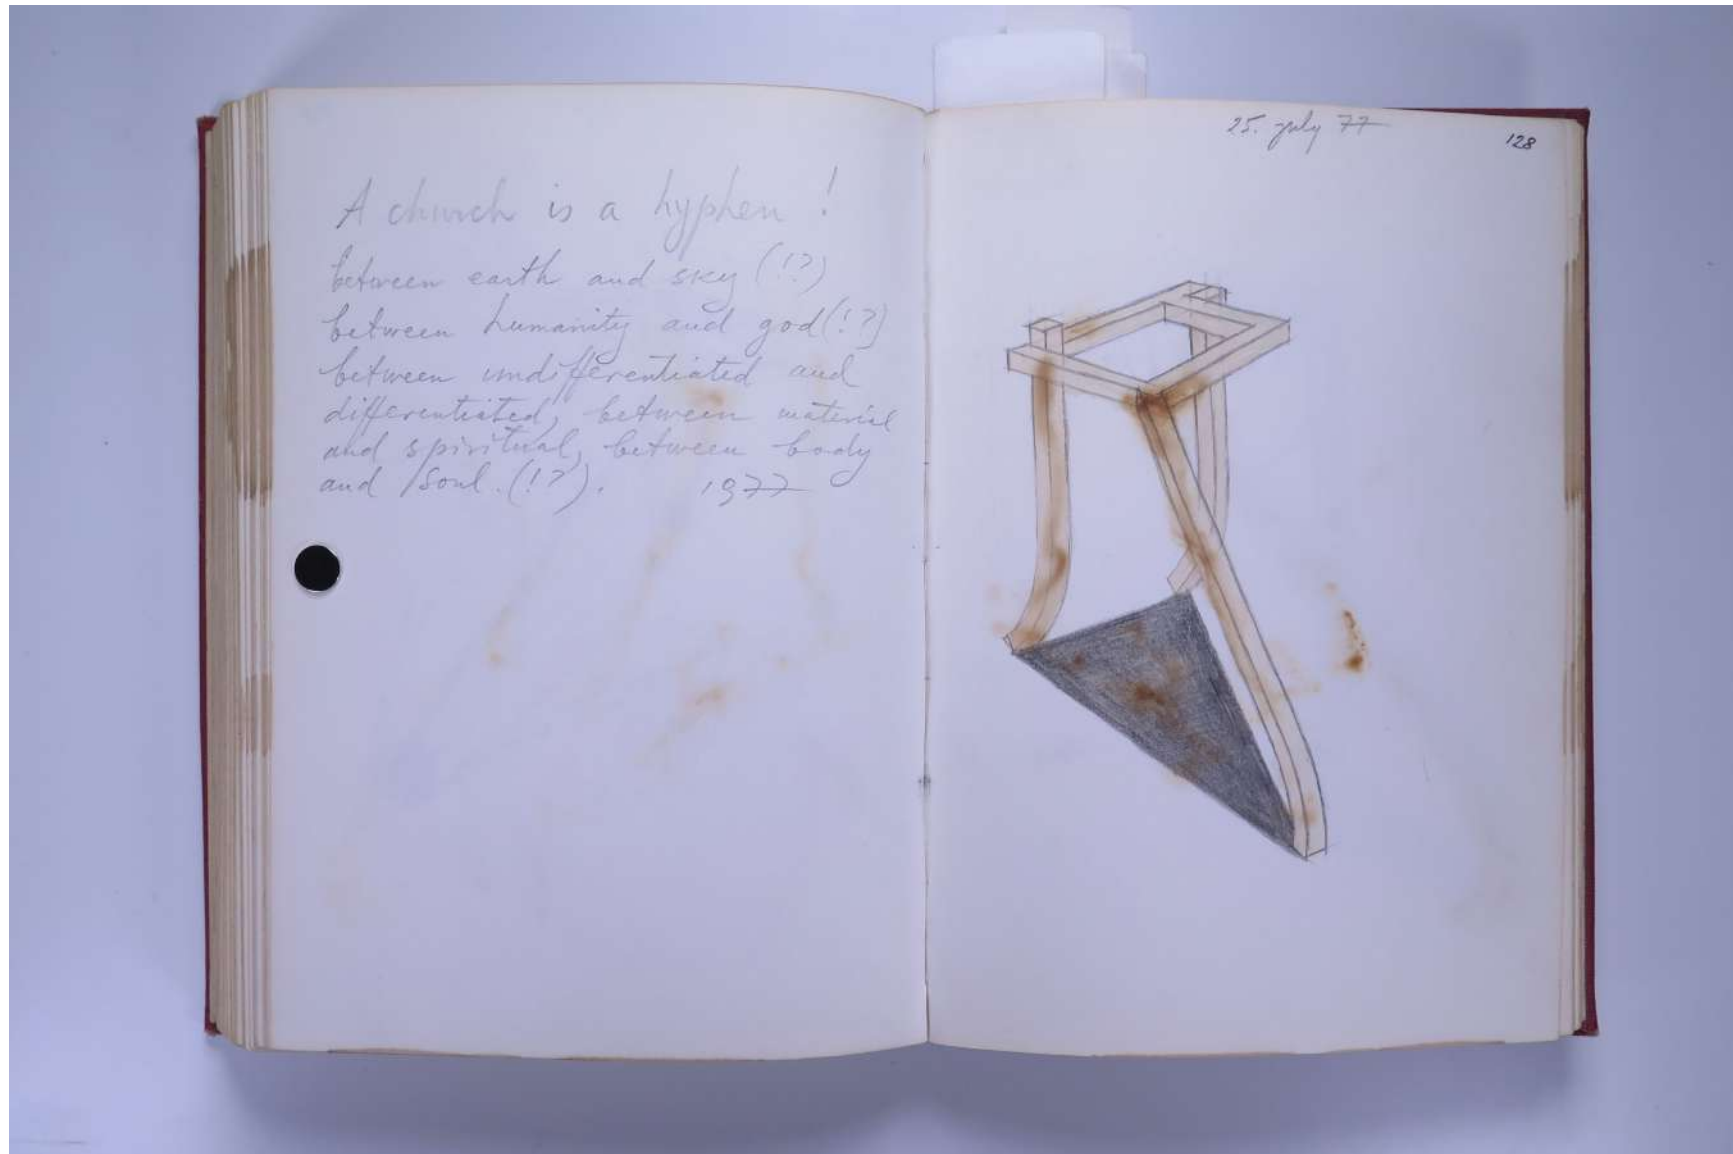 A church is a hyphen !
between earth and sky (!?)
between humanity and god (!?)
between undifferentiated and
differentiated, between material
and spiritual, between body
and soul. (!?). 1977
25. july 77
128